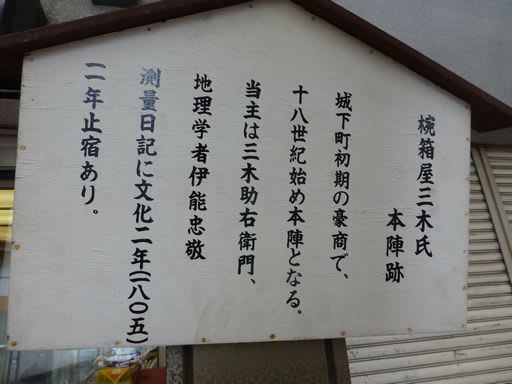 椀箱屋三木氏
本陣跡
城下町初期の豪商で、
十八世紀始め本陣となる。
当主は三木助右衛門、
地理学者伊能忠敬
測量日記に文化二年(一八〇五)
二一年止宿あり。